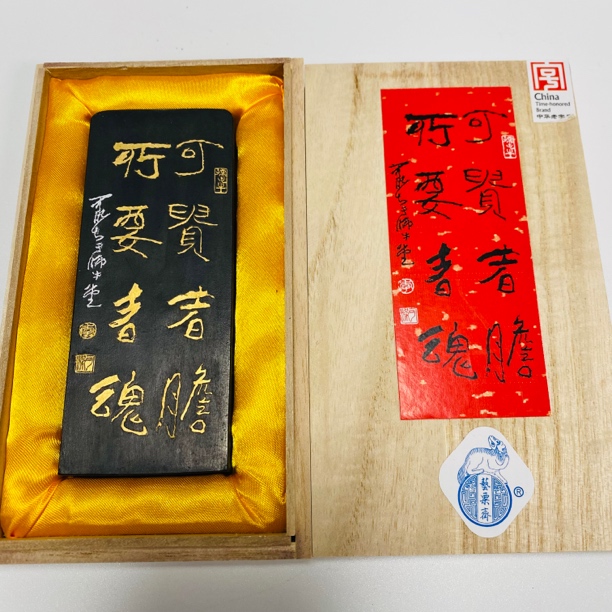 可貴者膽
所要者魂
師牛堂
可貴者膽
所要者魂
師牛堂
China
Time-honored
Brand
中华老字
藝粟齋
®